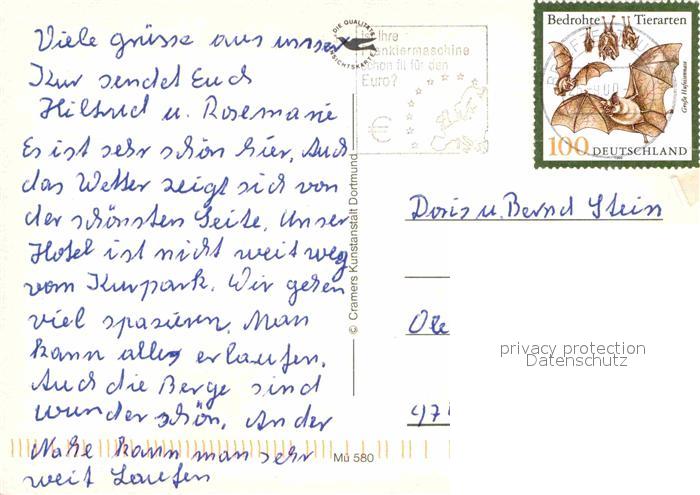 Viele grüsse aus unser
Kur sendet Euch
Hiltrud u. Rosemarie
Es ist sehr schön hier, Auch
das Wetter zeigt sich von
der schönsten Seite, Unser
Hotel ist nicht weit weg
vom Kurpark. Wir gehen
viel spazieren, Man
kann alles erlaufen.
Auch die Berge sind
wunderschön, An der
Nähe kann man sehr
weit Laufen
DIE QUALITÄTS
ANSICHTSKARTE
Ist Ihre
Frankiermaschine
schon fit für den
Euro?
Bedrohte Tierarten
Große Hufeisennase
100 DEUTSCHLAND
© Cramers Kunstanstalt Dortmund
Doris u. Bernd Stein
Ole
privacy protection
Datenschutz
47
Mü 580